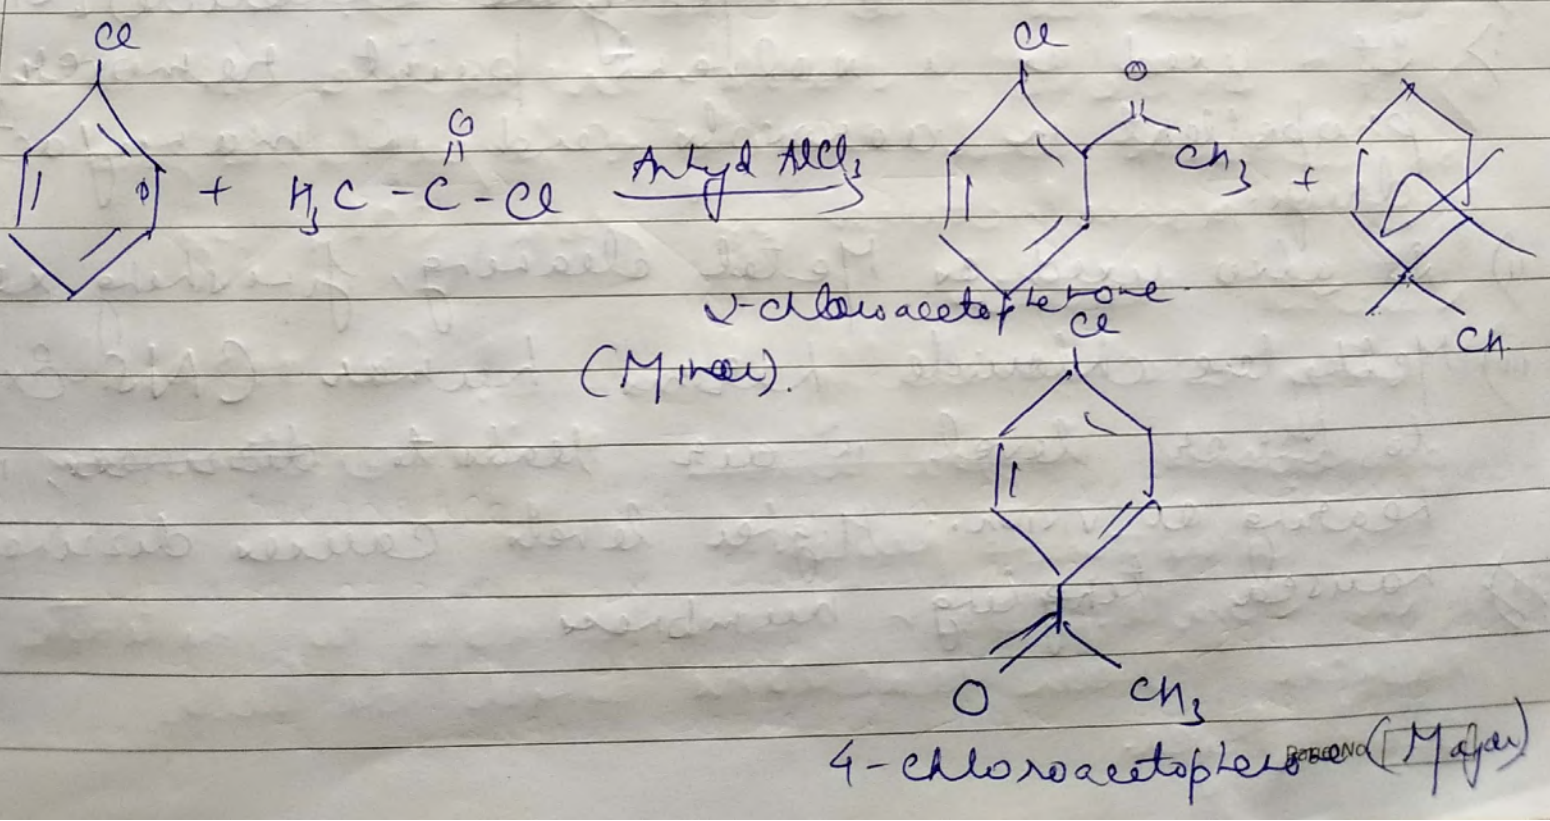 Cl
Cl
O
O
+ H3C - C - Cl Anhyd AlCl3 CH3 +
2-chloroacetophenone
CH
Cl
(Minor).
O CH3
4-chloroacetophenone (Major)